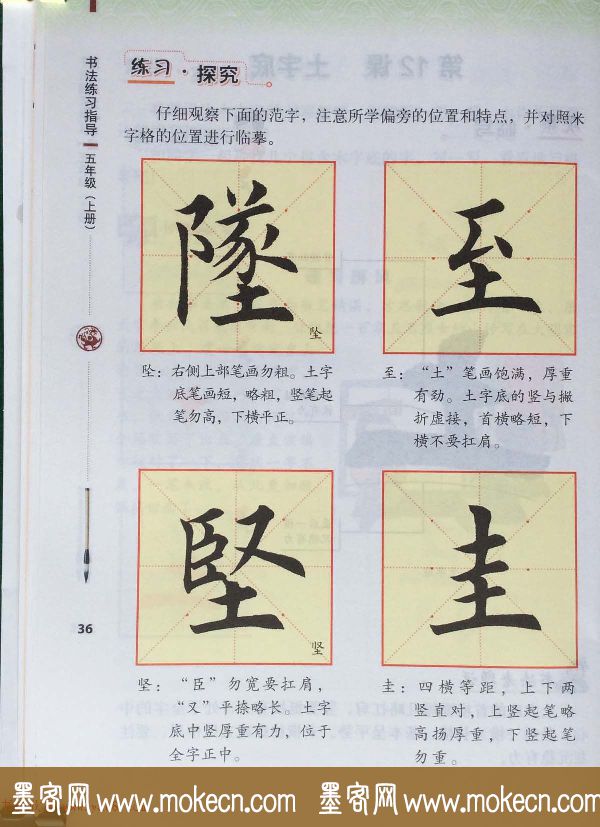 书法练习指导
五年级（上册）
36
练习·探究
仔细观察下面的范字，注意所学偏旁的位置和特点，并对照米
字格的位置进行临摹。
墜
坠
至
坠：右侧上部笔画勿粗。土字
底笔画短，略粗，竖笔起
笔勿高，下横平正。
至：“土”笔画饱满，厚重
有劲。土字底的竖与撇
折虚接，首横略短，下
横不要扛肩。
堅
坚
圭
坚：“臣”勿宽要扛肩，
“又”平捺略长。土字
底中竖厚重有力，位于
全字正中。
圭：四横等距，上下两
竖直对，上竖起笔略
高扬厚重，下竖起笔
勿重。
墨客网 www.mokecn.com 墨客网 www.mokecn.com